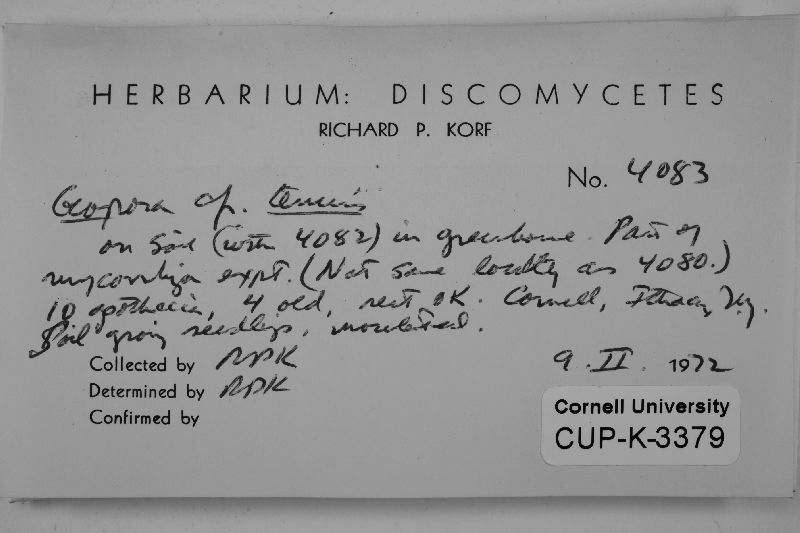 HERBARIUM: DISCOMYCETES
RICHARD P. KORF
No. 4083
Geopora cf. tenuis
on soil (with 4082) in greenhouse. Part of
mycorrhiza expt. (Not same locality as 4080.)
10 apothecia, 4 old, rest OK. Cornell, Ithaca, N.Y.
Soil growing seedlings, inoculated.
Collected by RPK 9. II. 1972
Determined by RPK
Confirmed by
Cornell University
CUP-K-3379